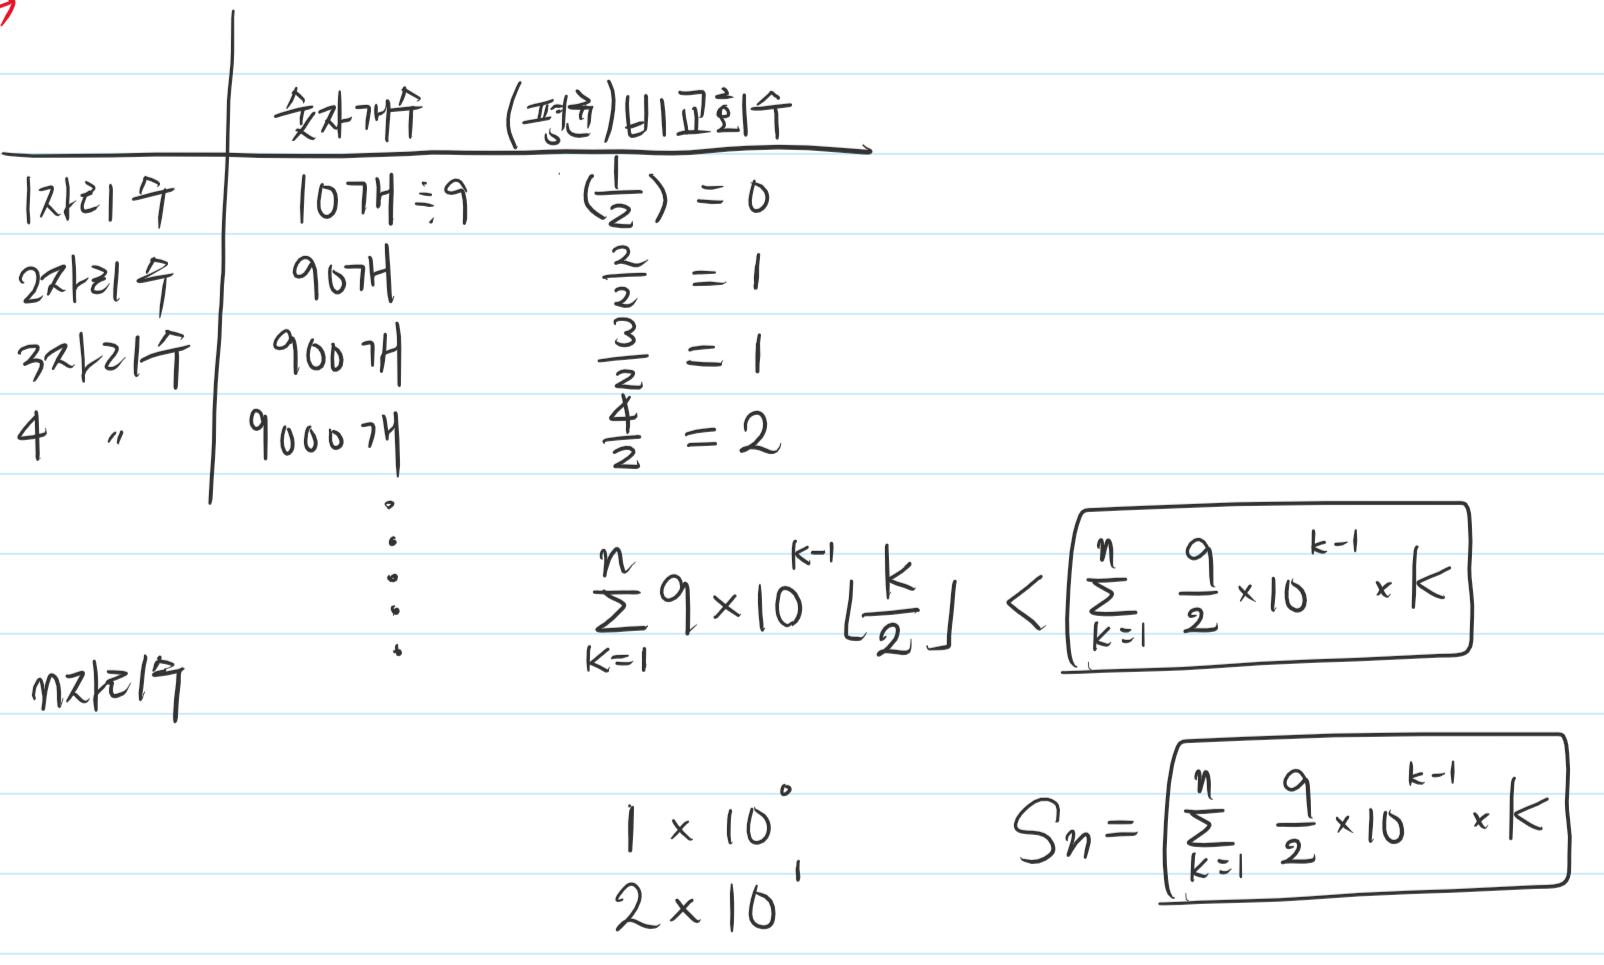 숫자개수 (평균)비교회수
1자리 수 10개 ≒9 (1/2) = 0
2자리 수 90개 2/2 = 1
3자리수 900개 3/2 = 1
4 〃 9000개 4/2 = 2
n자리수
∑_{k=1}^{n} 9×10^{k-1} ⌊k/2⌋ < ∑_{k=1}^{n} 9/2 ×10^{k-1} × k
1 × 10^0
2 × 10^1
Sn = ∑_{k=1}^{n} 9/2 ×10^{k-1} × k